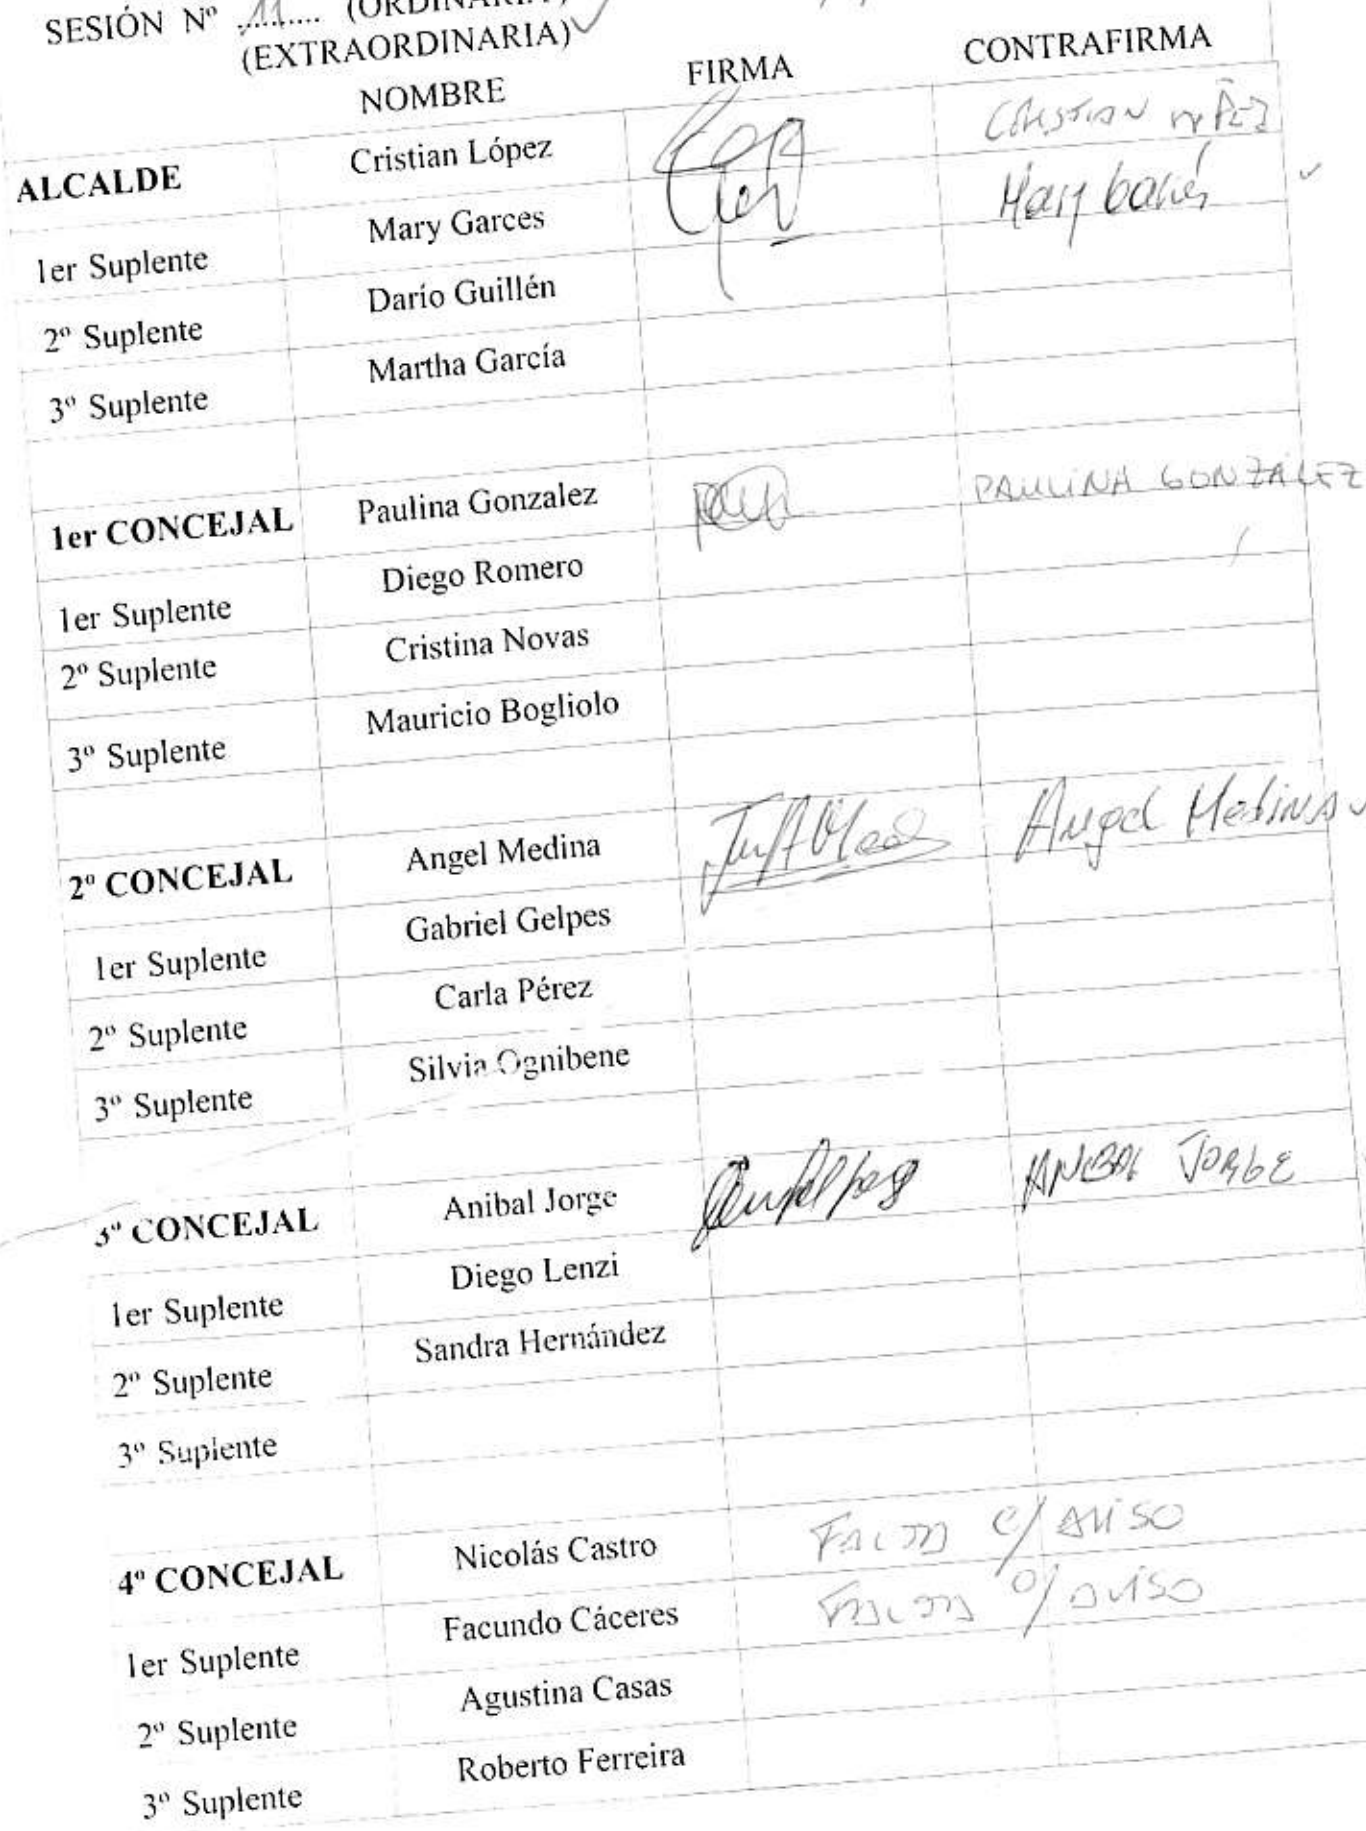 SESIÓN Nº ..11...... (ORDINARIA)
(EXTRAORDINARIA)
NOMBRE FIRMA CONTRAFIRMA
ALCALDE Cristian López
1er Suplente Mary Garces Mary Garcés
2º Suplente Darío Guillén
3º Suplente Martha García
1er CONCEJAL Paulina Gonzalez PAULINA GONZÁLEZ
1er Suplente Diego Romero
2º Suplente Cristina Novas
3º Suplente Mauricio Bogliolo
2º CONCEJAL Angel Medina Angel Medina
1er Suplente Gabriel Gelpes
2º Suplente Carla Pérez
3º Suplente Silvia Ognibene
3º CONCEJAL Anibal Jorge ANIBAL JORGE
1er Suplente Diego Lenzi
2º Suplente Sandra Hernández
3º Suplente
4º CONCEJAL Nicolás Castro FALTA C/ AVISO
1er Suplente Facundo Cáceres FALTA C/ AVISO
2º Suplente Agustina Casas
3º Suplente Roberto Ferreira